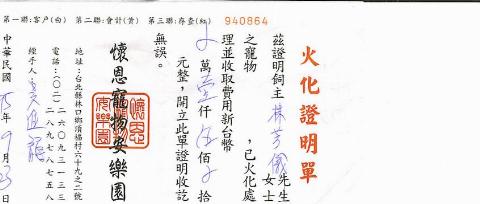 第一聯:客戶(白) 第二聯:會計(黃) 第三聯:存查(紅) 940864
火化證明單
茲證明飼主林芳儀先生女士
之寵物 ,已火化處
理並收取費用新台幣
萬壹仟伍佰 拾
元整,開立此單證明收訖
無誤。
懷恩寵物安樂園
地址:台北縣林口鄉頂福村六十九之二號
電話:(〇二)二六〇九三一三三
二八九七八七五八
經手人:
中華民國 95年9月23日